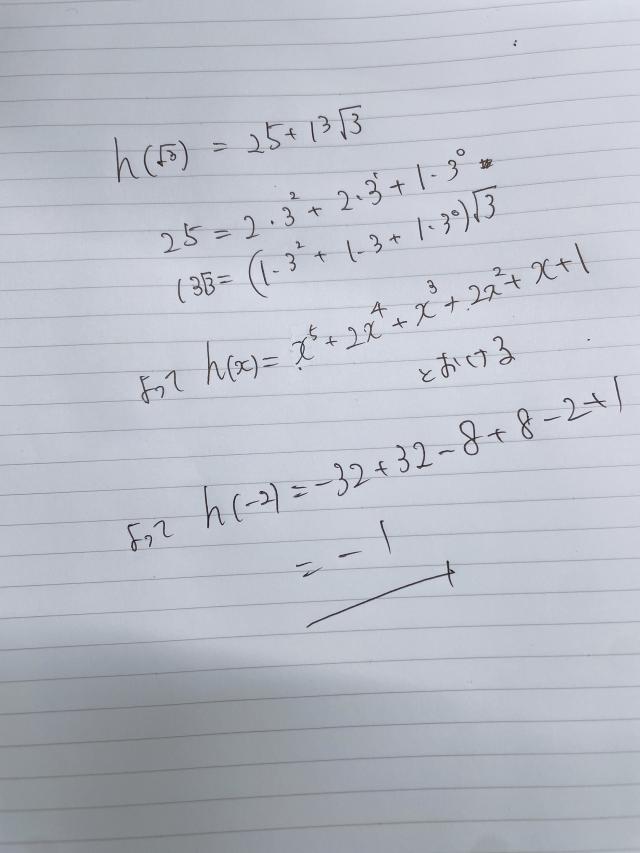 h(√3) = 25+13√3
25 = 2・3² + 2・3¹ + 1・3⁰
13√3 = (1・3² + 1・3 + 1・3⁰)√3
よって h(x) = x⁵ + 2x⁴ + x³ + 2x² + x + 1
とおける
よって h(-2) = -32+32-8+8-2+1
= -1